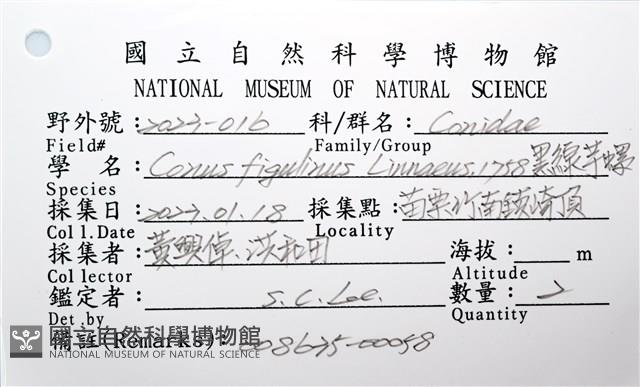 國立自然科學博物館
NATIONAL MUSEUM OF NATURAL SCIENCE
野外號：2023-016 科/群名：Conidae
Field# Family/Group
學 名：Conus figulinus Linnaeus.1758 黑線芋螺
Species
採集日：2023.01.18 採集點：苗栗竹南鎮崎頂
Coll.Date Locality
採集者：黃興倬、洪和田 海拔： m
Collector Altitude
鑑定者：S.C.Lee. 數量：2
Det.by Quantity
備註(Remarks)：008635-00058
國立自然科學博物館
NATIONAL MUSEUM OF NATURAL SCIENCE